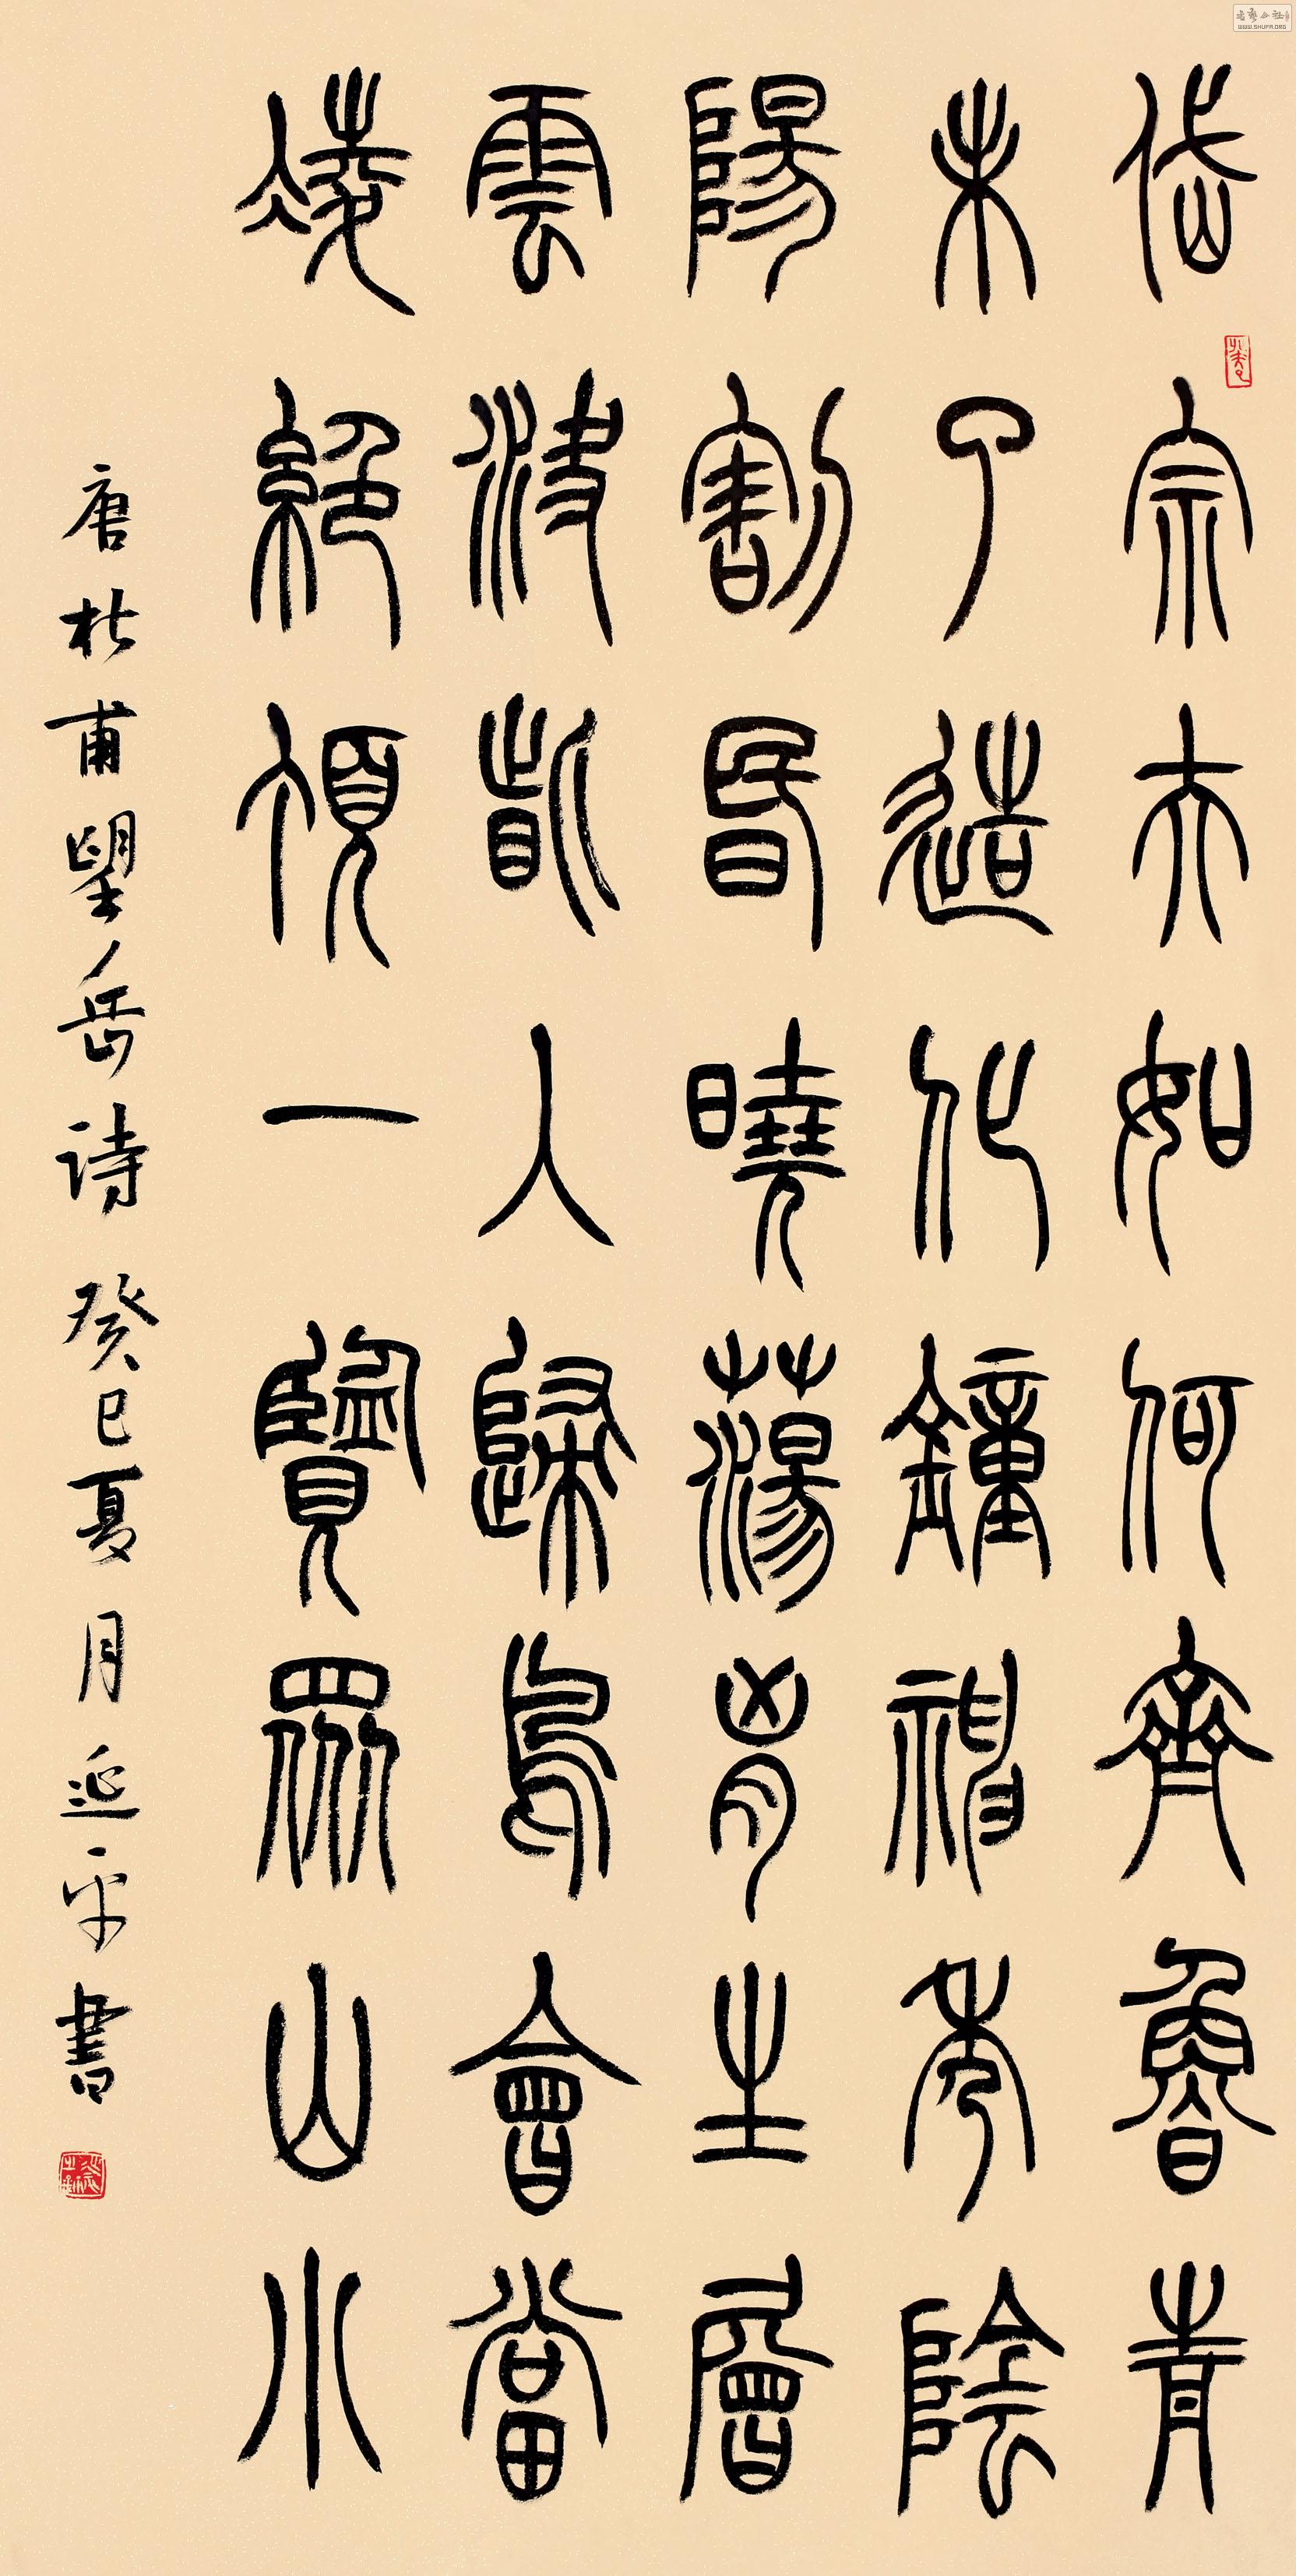 岱宗夫如何齊魯青
未了造化鐘神秀陰
陽割昏曉蕩胷生層
雲決眥入歸鳥會當
凌絕頂一覽眾山小
唐杜甫望岳詩癸巳夏月延平書
WWW.SHUFA.ORG